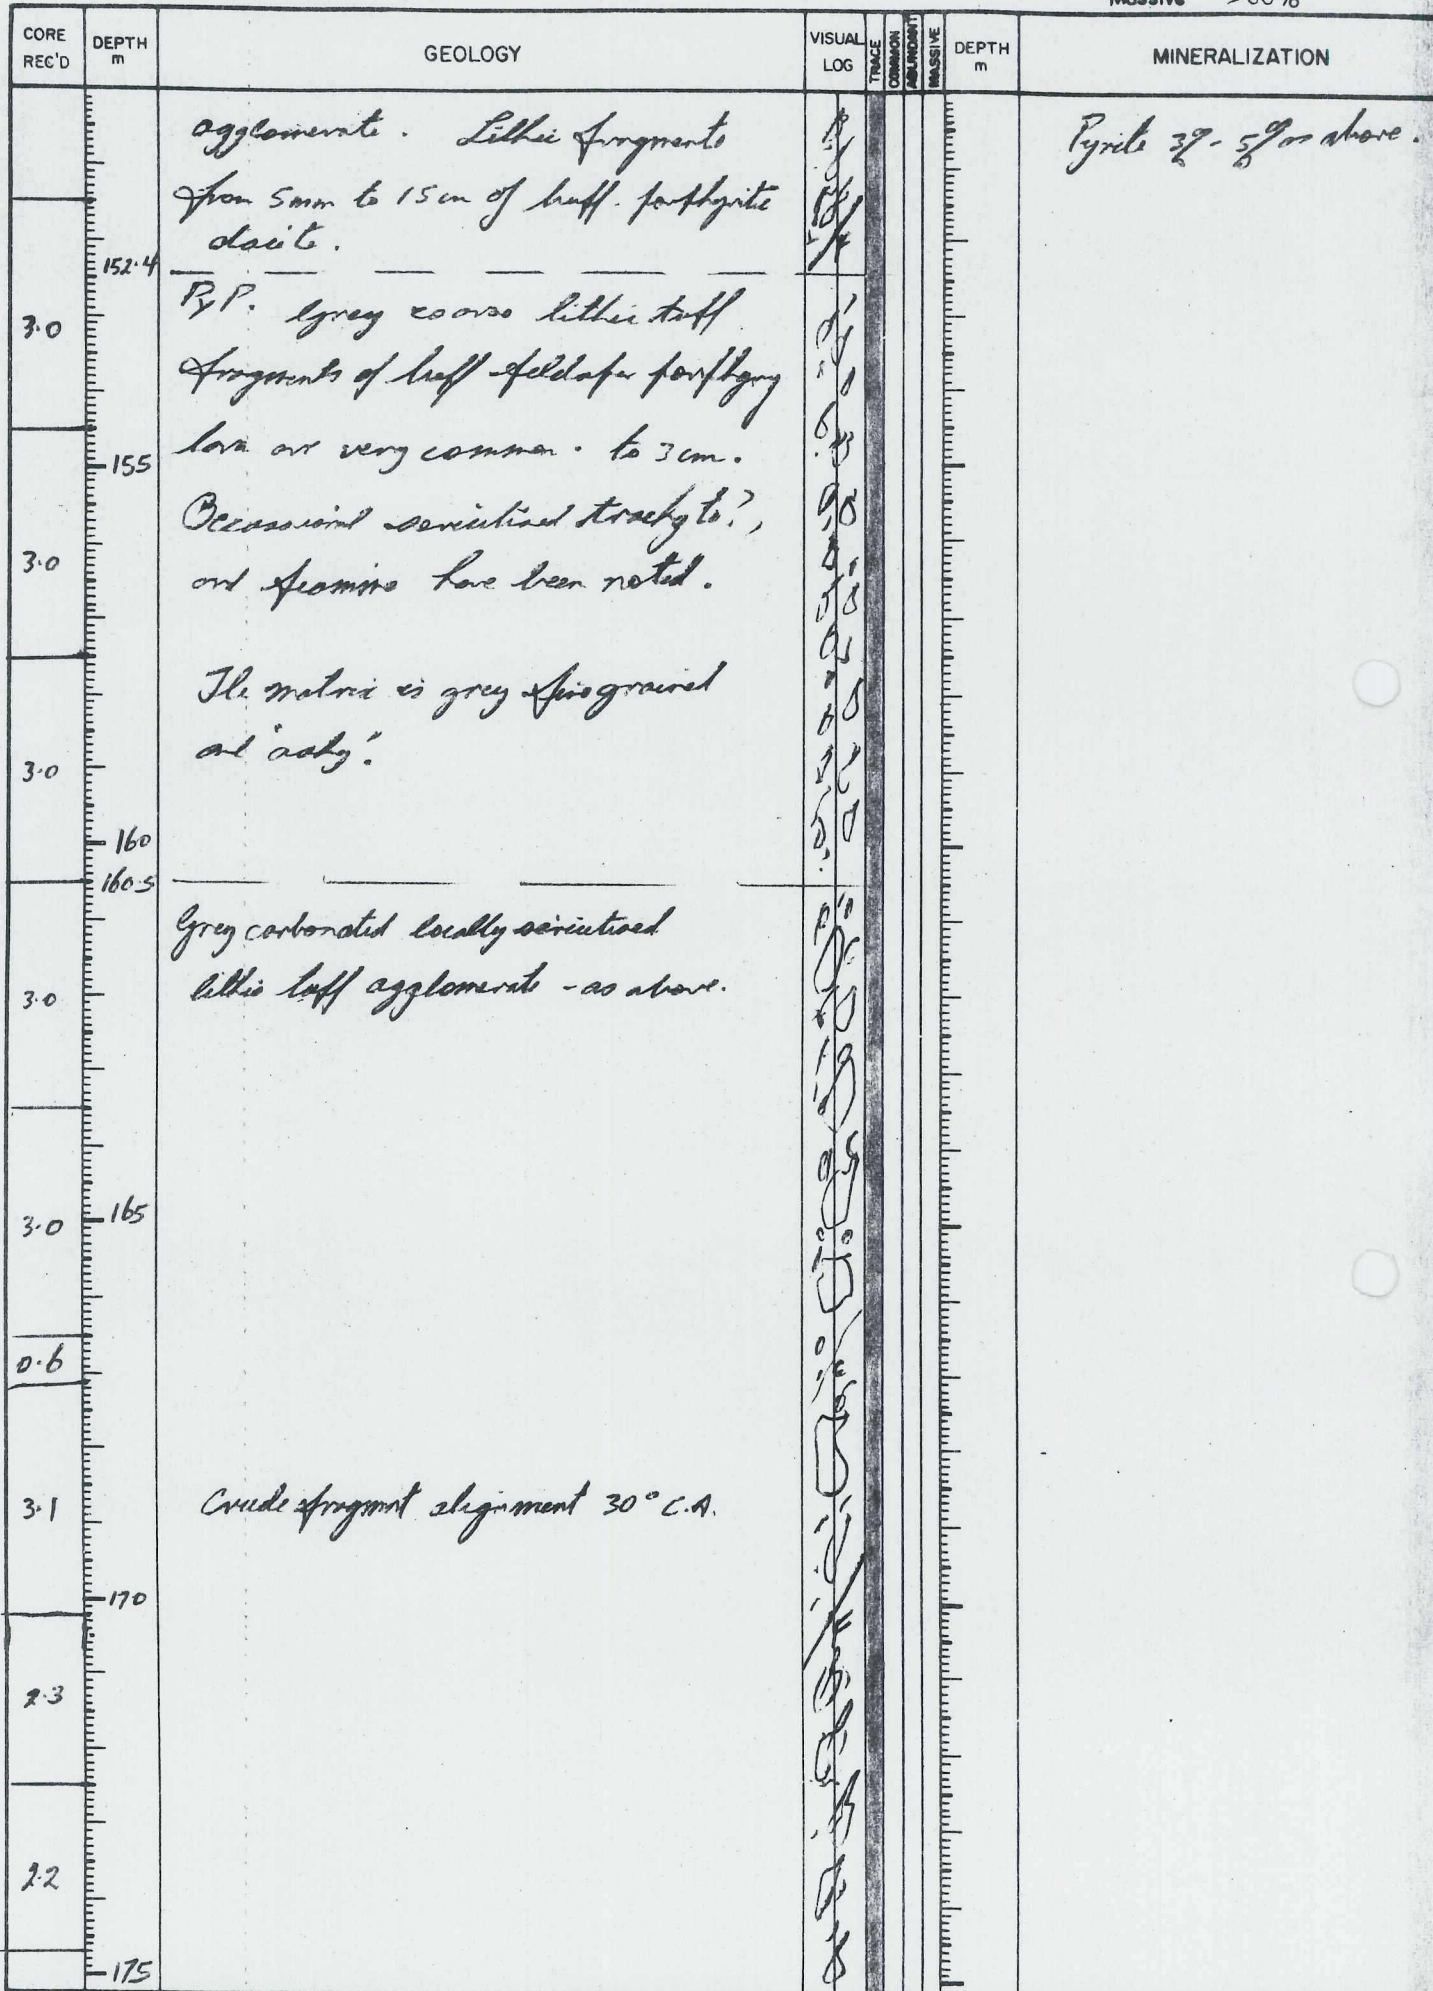 Massive >60%
CORE REC'D
DEPTH m
GEOLOGY
VISUAL LOG
TRACE
COMMON
ABUNDANT
MASSIVE
DEPTH m
MINERALIZATION
agglomerate. Lithic fragments
from 5mm to 15cm of buff. porphyritic
dacite.
Pyrite 3% - 5% as above.
152.4
3.0
PyP. Grey coarse lithic tuff
fragments of buff feldspar porphyry
lava are very common. to 3cm.
155
Occassional sericitised trachyte?,
3.0
and have been noted.
The matrix is grey fine grained
and "ashy".
3.0
160
160.5
Grey carbonated locally sericitised
lithic tuff agglomerate - as above.
3.0
165
3.0
0.6
3.1
Crude fragment alignment 30° C.A.
170
2.3
2.2
175